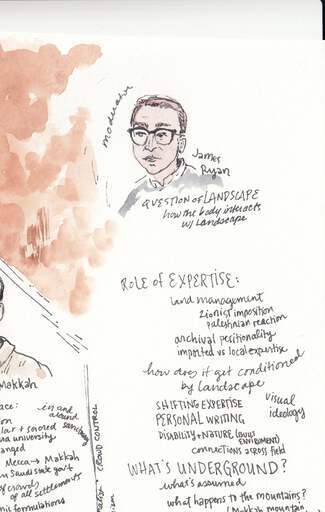 moderator
James
Ryan
QUESTION OF LANDSCAPE
how the body interacts
w/ landscape
ROLE OF EXPERTISE:
land management
Zionist imposition
palestinian reaction
archival positionality
imported vs local expertise
how does it get conditioned
by landscape
visual
ideology
SHIFTING EXPERTISE
PERSONAL WRITING
DISABILITY + NATURE (BUILT
ENVIRONMENT)
connections across field
WHAT'S UNDERGROUND?
what's assumed
what happens to the mountains?
Makkah mountain
Makkah
ace:
in and
around
sanctuary
university
anged
Mecca → Makkah
Saudi state gov't
of crowds
of all settlements
formulations
CROWD CONTROL